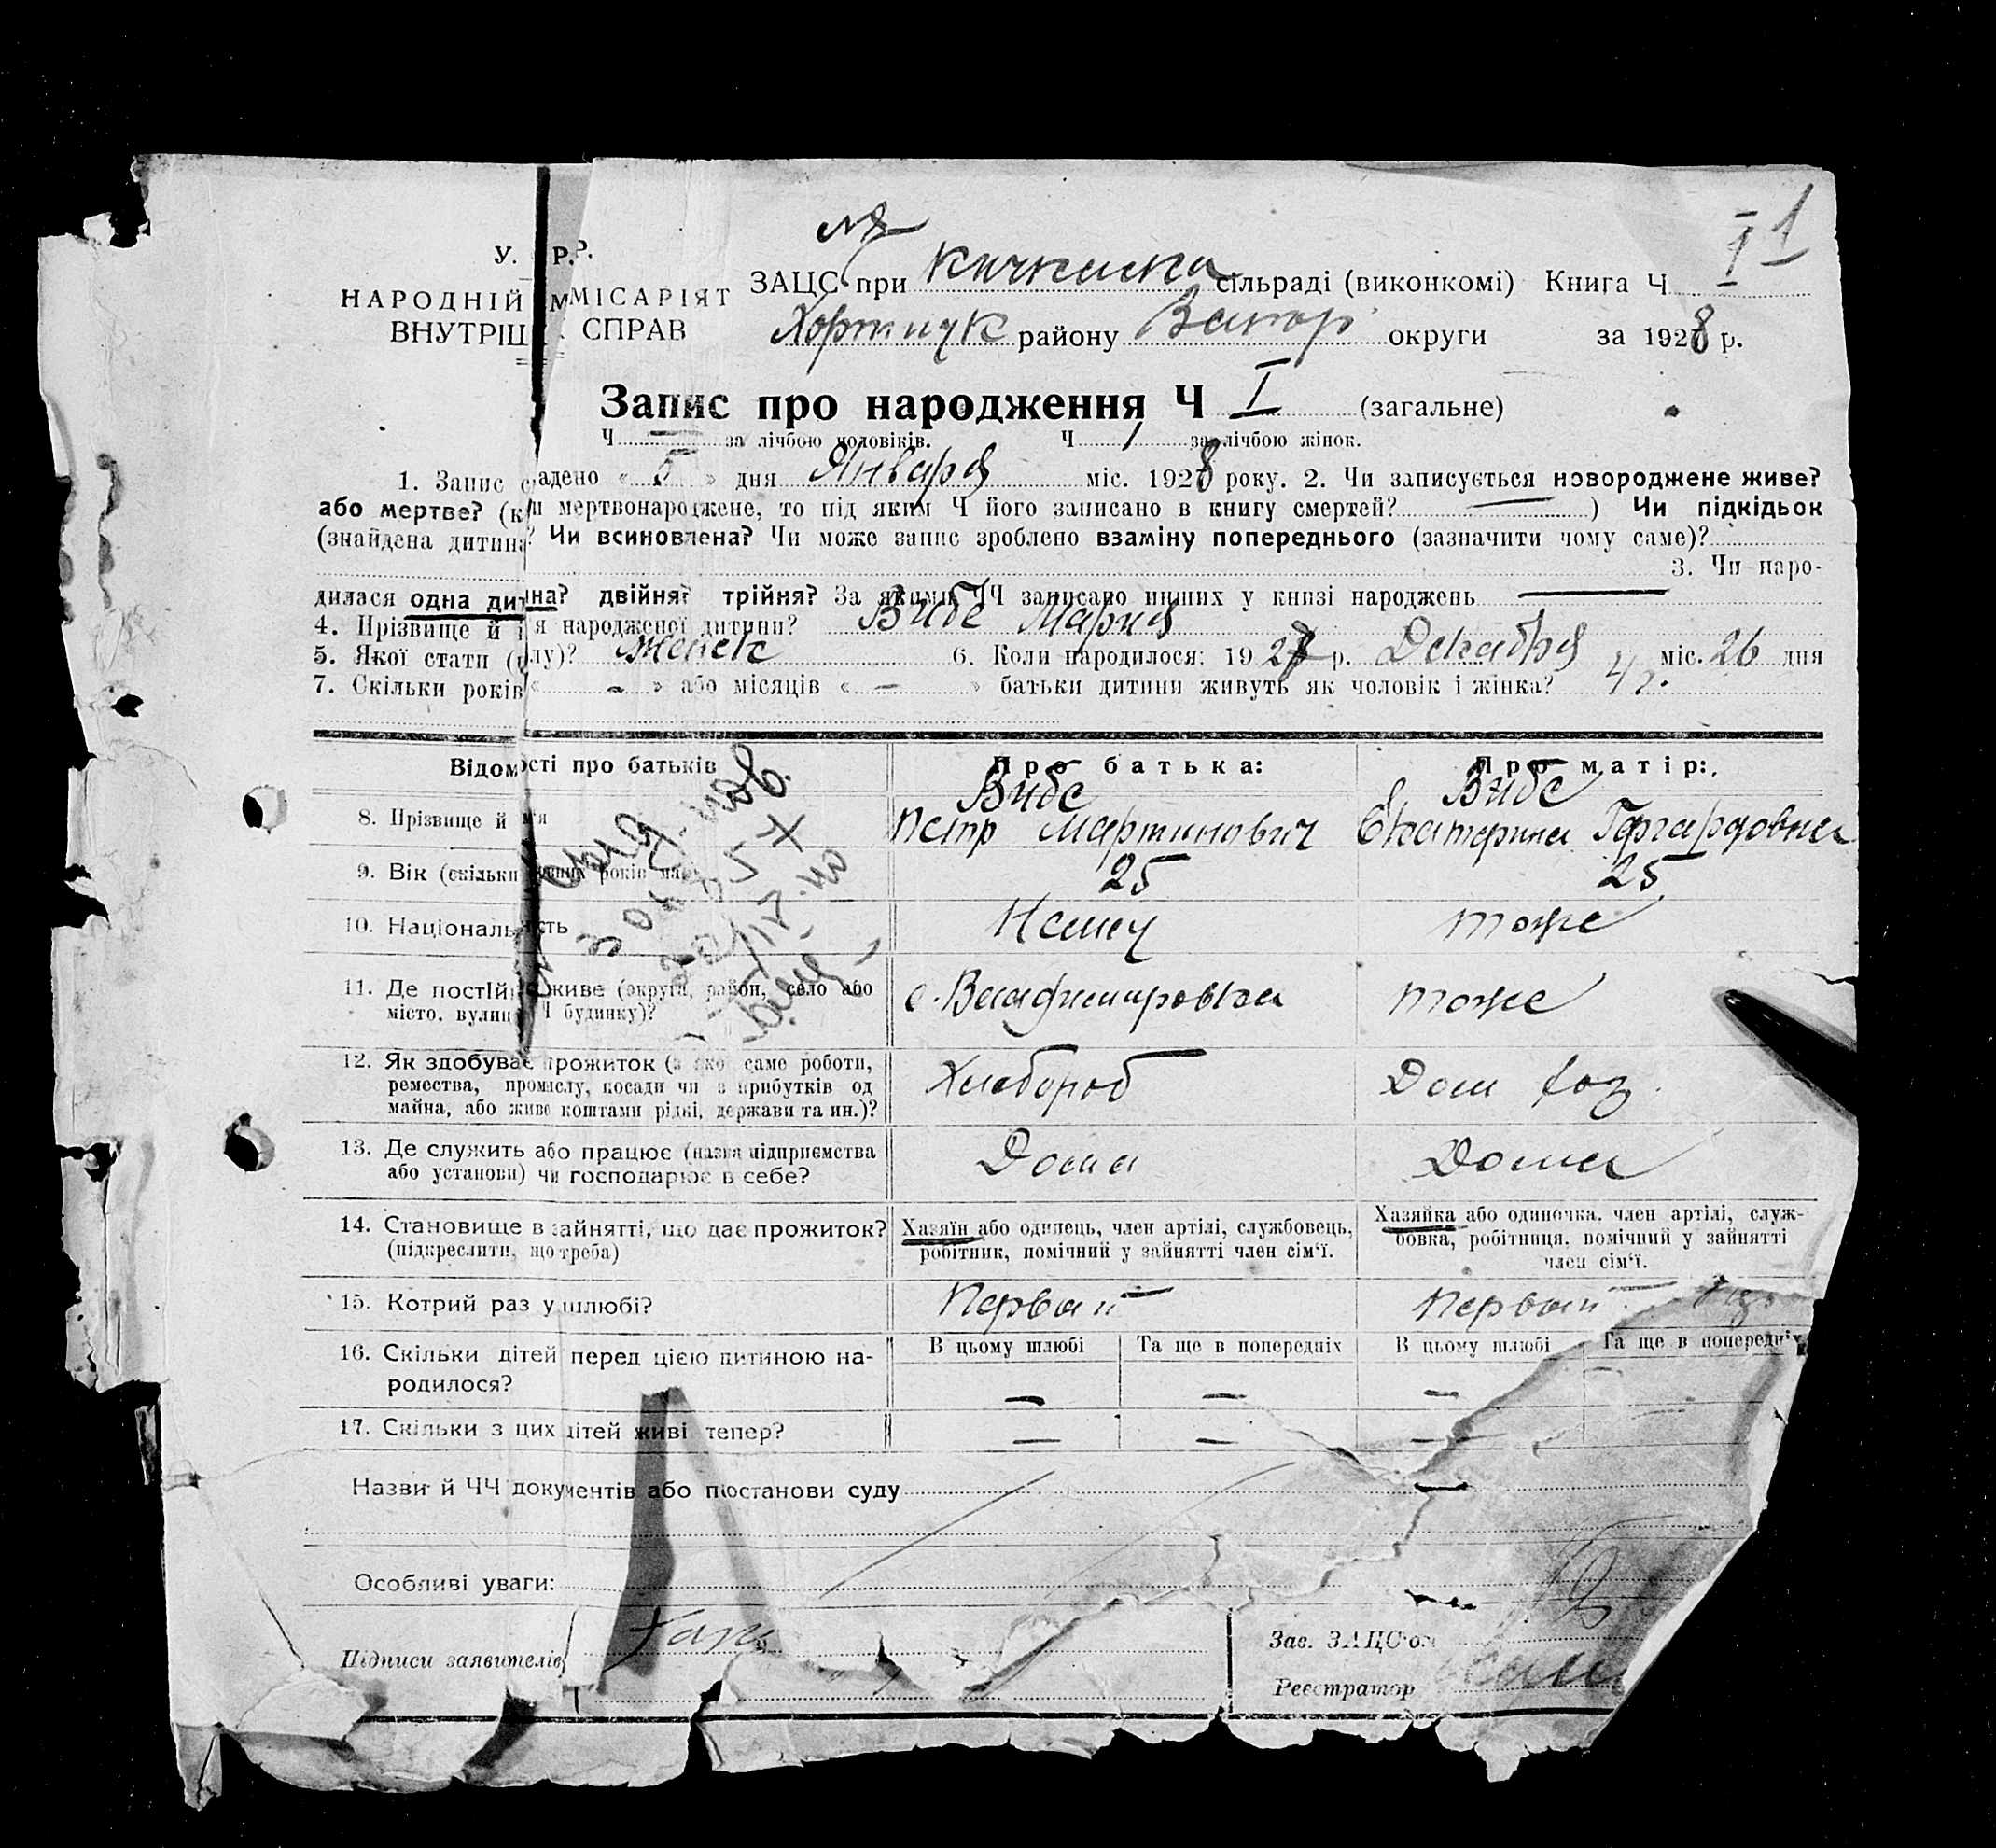 У. Р.Р.
НАРОДНІЙ МІСАРІЯТ
ВНУТРІШ СПРАВ
ЗАЦС при Кичкаска сільраді (виконкомі) Книга Ч I 1
Хортицк району Запор округи за 1928 р.
Запис про народження Ч I (загальне)
Ч — за лічбою чоловіків. Ч 1 за лічбою жінок.
1. Запис складено « 5 » дня Января міс. 1928 року. 2. Чи записується новороджене живе?
або мертве? (коли мертвонароджене, то під яким Ч його записано в книгу смертей? — ) Чи підкідьок
(знайдена дитина? Чи всиновлена? Чи може запис зроблено взаміну попереднього (зазначити чому саме)?
3. Чи наро-
дилася одна дитина? двійня? трійня? За якими ЧЧ записано инших у книзі народжень —
4. Прізвище й імя народженої дитини? Вибе Мария
5. Якої стати (полу)? женск 6. Коли народилося: 1927 р. Декабря міс. 26 дня
7. Скільки років « - » або місяців « - » батьки дитини живуть як чоловік і жінка? 4 г.
Відомості про батьків Про батька: Про матір:
8. Прізвище й імя Вибе Петр Мартинович Вибе Екатерина Гергардовна
9. Вік (скільки повних років має) 25 25
10. Національність Немец тоже
11. Де постійно живе (округа, район, село або місто, вулиця Ч будинку)? с. Владимировка тоже
12. Як здобуває прожиток (з якої саме роботи, ремества, промислу, посади чи з прибутків од майна, або живе коштами рідні, держави та ин.)? Хлебороб Дом хоз.
13. Де служить або працює (назва підприємства або установи) чи господарює в себе? Дома Дома
14. Становище в зайнятті, що дає прожиток? (підкреслити, що треба) Хазяїн або одинець, член артілі, службовець, робітник, помічний у зайнятті член сім'ї. Хазяйка або одиночка, член артілі, служ-бовка, робітниця, помічний у зайнятті член сім'ї.
15. Котрий раз у шлюбі? Первый Первый раз
16. Скільки дітей перед цією дитиною на-родилося? В цьому шлюбі — Та ще в попередніх — В цьому шлюбі — Та ще в попередніх
17. Скільки з цих дітей живі тепер? — — —
Назви й ЧЧ документів або постанови суду
Особливі уваги:
Підписи заявителів
Зав. ЗАЦС'ом
Реєстратор